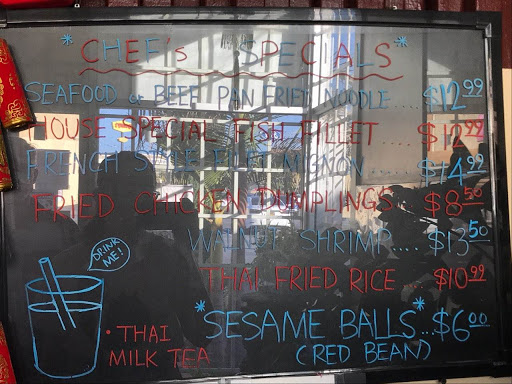 * CHEF's SPECIALS *
SEAFOOD or BEEF PAN FRIED NOODLE.... $12.99
HOUSE SPECIAL FISH FILLET.... $12.99
FRENCH STYLE FILET MIGNON..... $14.99
FRIED CHICKEN DUMPLINGS $8.50
WALNUT SHRIMP.... $13.50
THAI FRIED RICE... $10.99
DRINK ME!
* SESAME BALLS *...$6.00
(RED BEAN)
• THAI
MILK TEA